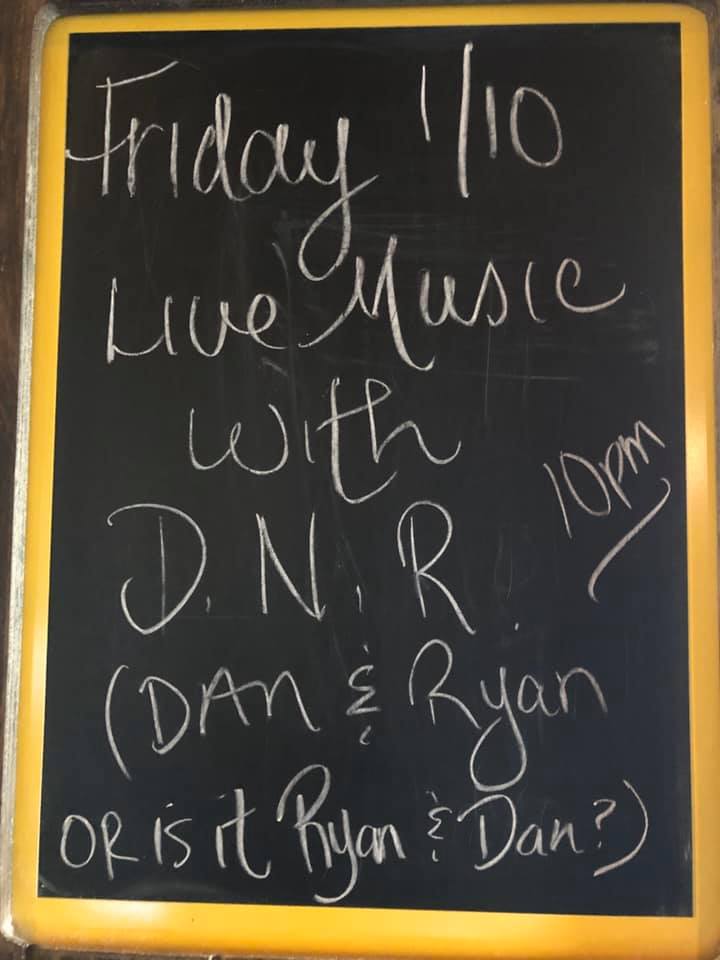 Friday 1/10
Live Music
with
10pm
D.N.R.
(DAN & Ryan
OR is it Ryan & Dan?)